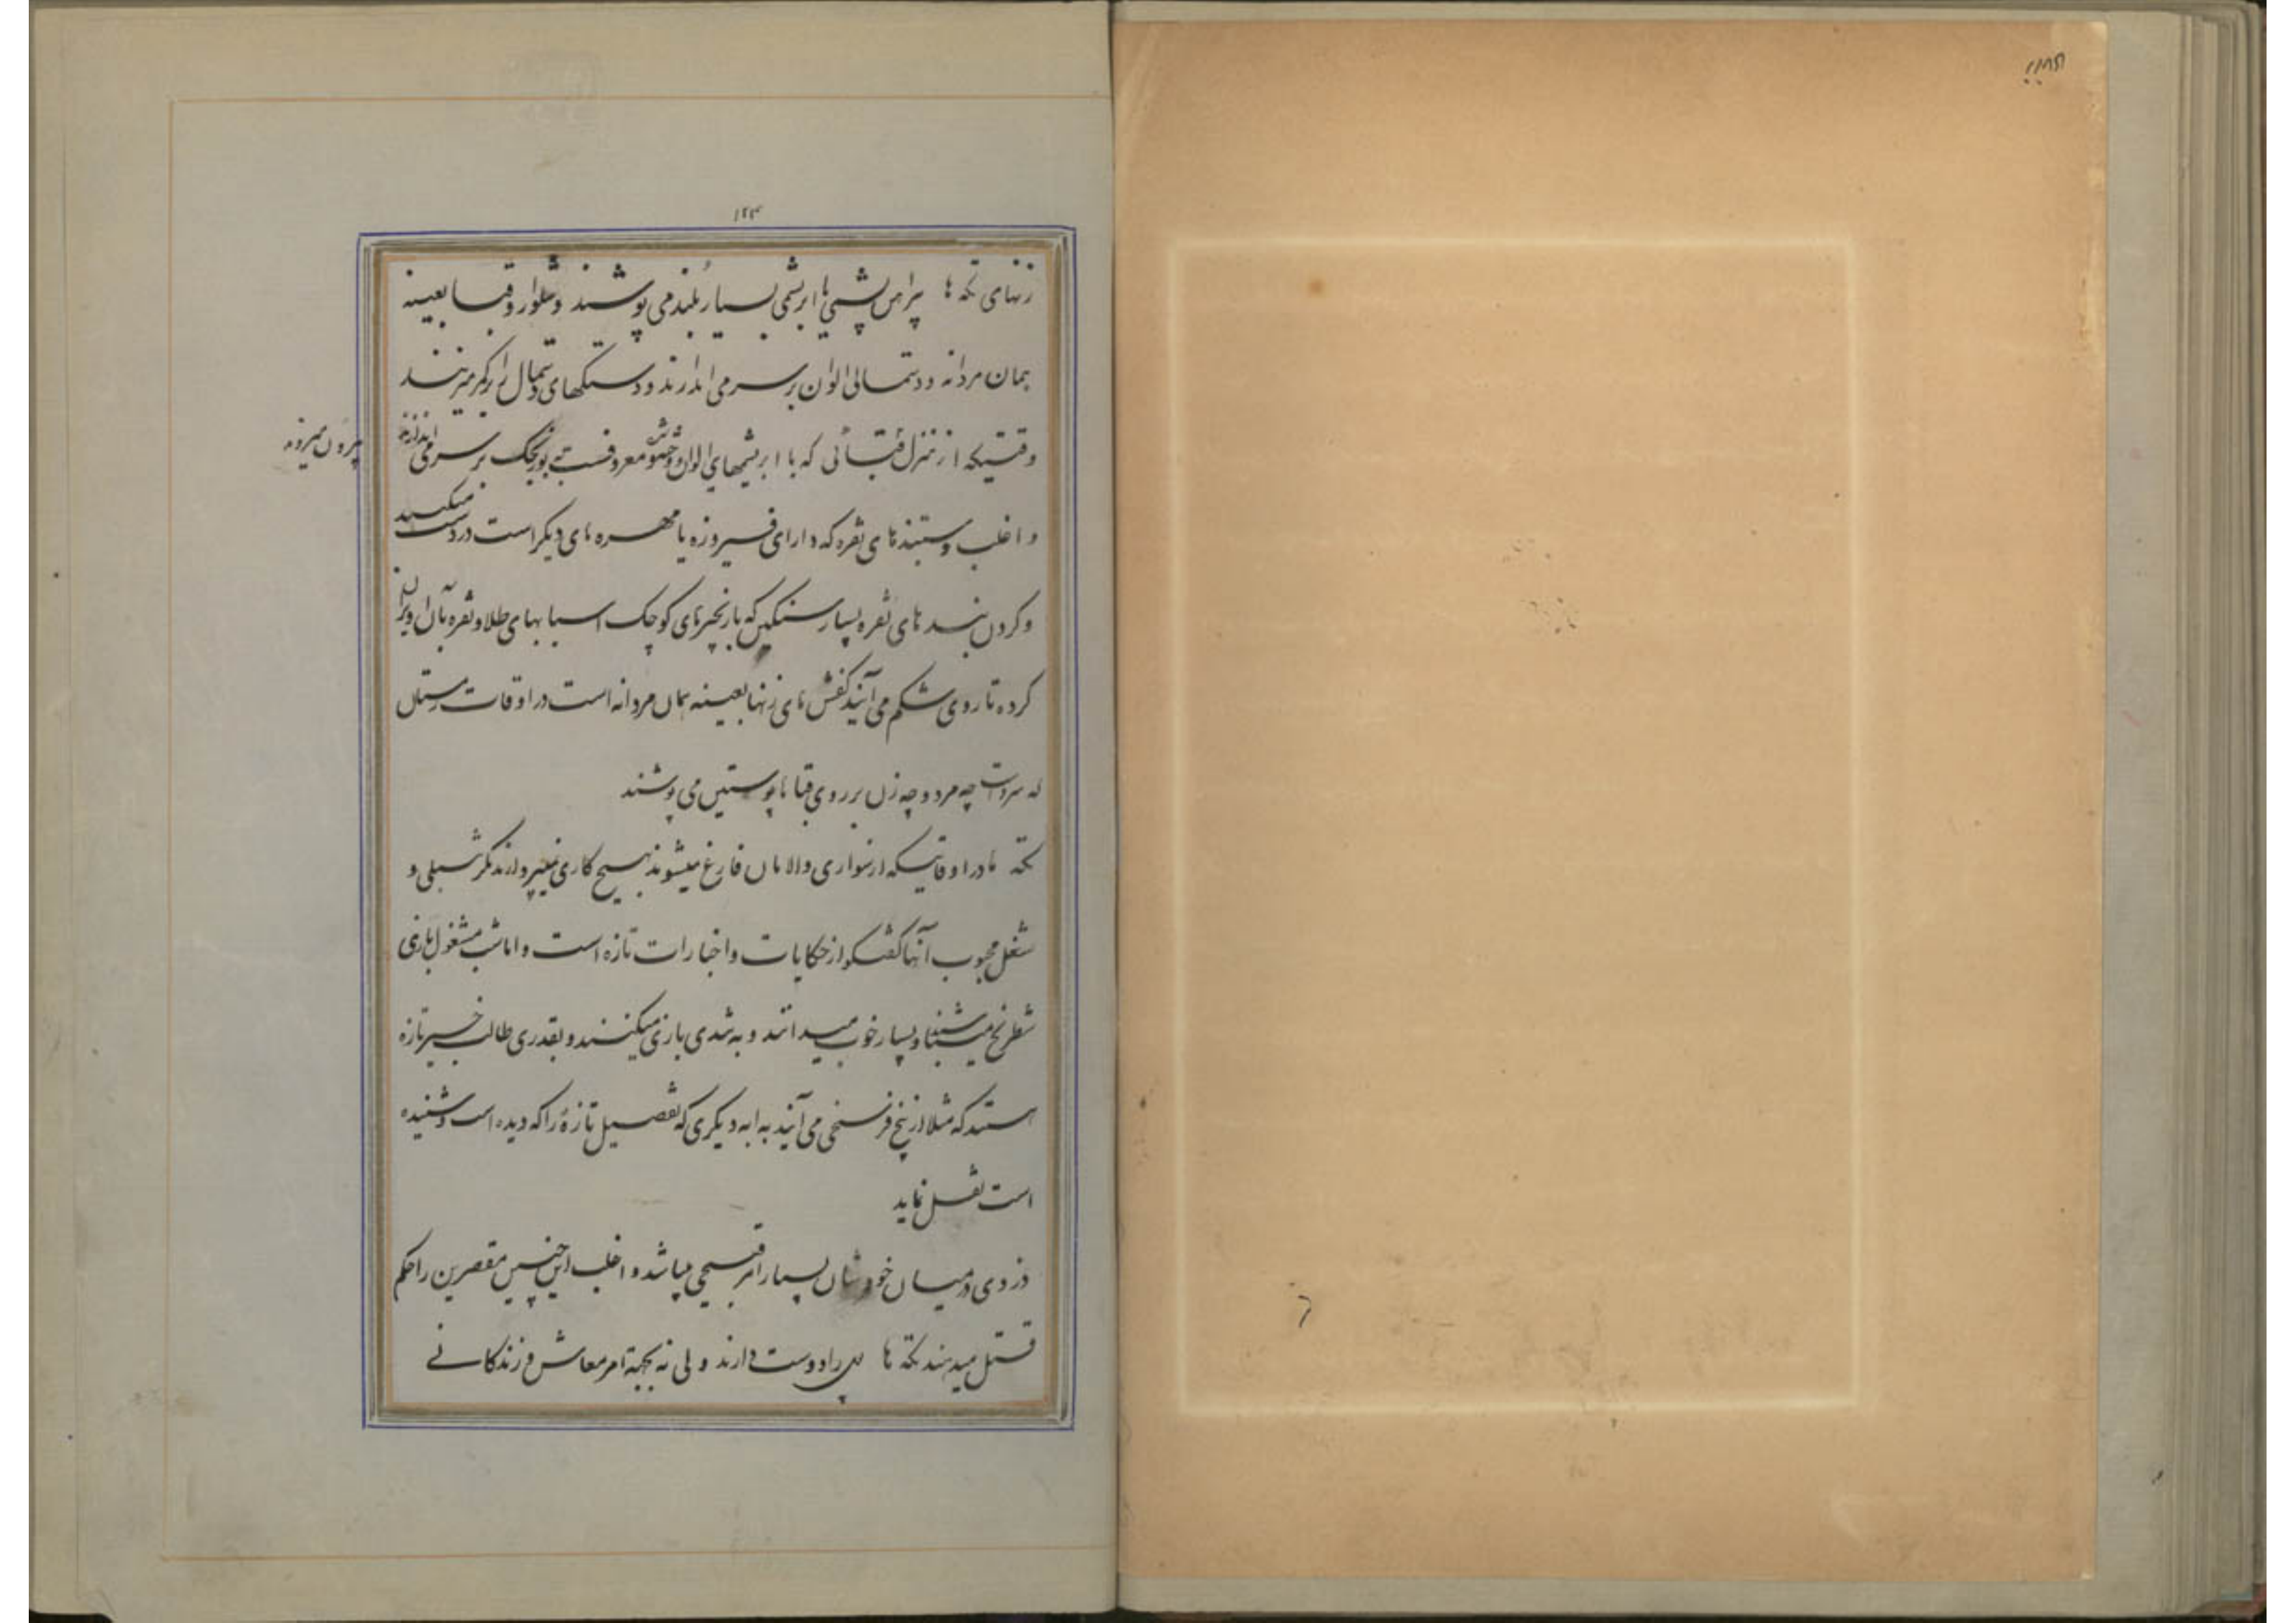 ۱۲۳
زنهای تکه ها پیراهن پشمی یا ابریشمی بسیار بلند می پوشند و شلوار و قبا بعینه
همان مردانه و دستمالی الوان بر سر می اندازند و دستکهای دستمال را بکمر میزنند
وقتیکه از منزل بیرون میروند قبائی که با ابریشمهای الوان معروفست به بورنجک بر سر می اندازند
و اغلب دستبندهای نقره که دارای فیروزه یا مهره های دیگر است در دست میکنند
و گردن بندهای نقره بسیار سنگین که با زنجیرهای کوچک اسبابهای طلا و نقره بآن آویزان
کرده تا روی شکم می آیند کفش های زنها بعینه همان مردانه است در اوقات زمستان
که سرد است چه مرد و چه زن بر روی قبا ها پوستین می پوشند
تکه ها در اوقاتیکه از سواری و الامان فارغ میشوند بهیچ کاری نمیپردازند مگر تنبلی و
شغل محبوب آنها گفتگو از حکایات و اخبارات تازه است و اما شب مشغول بازی
شطرنج میباشند و بسیار خوب میدانند و به تندی بازی میکنند و بقدری طالب خبر تازه
هستند که مثلا از پنج فرسخی می آیند به ابه دیگری که تفصیل تازۀ را که دیده است و شنیده
است نقل نماید
دزدی در میان خودشان بسیار امر قبیحی میباشد و اغلب این چنین مقصرین را حکم
قتل میدهند تکه ها پول را دوست دارند ولی نه بجهة امر معاش و زندگانی